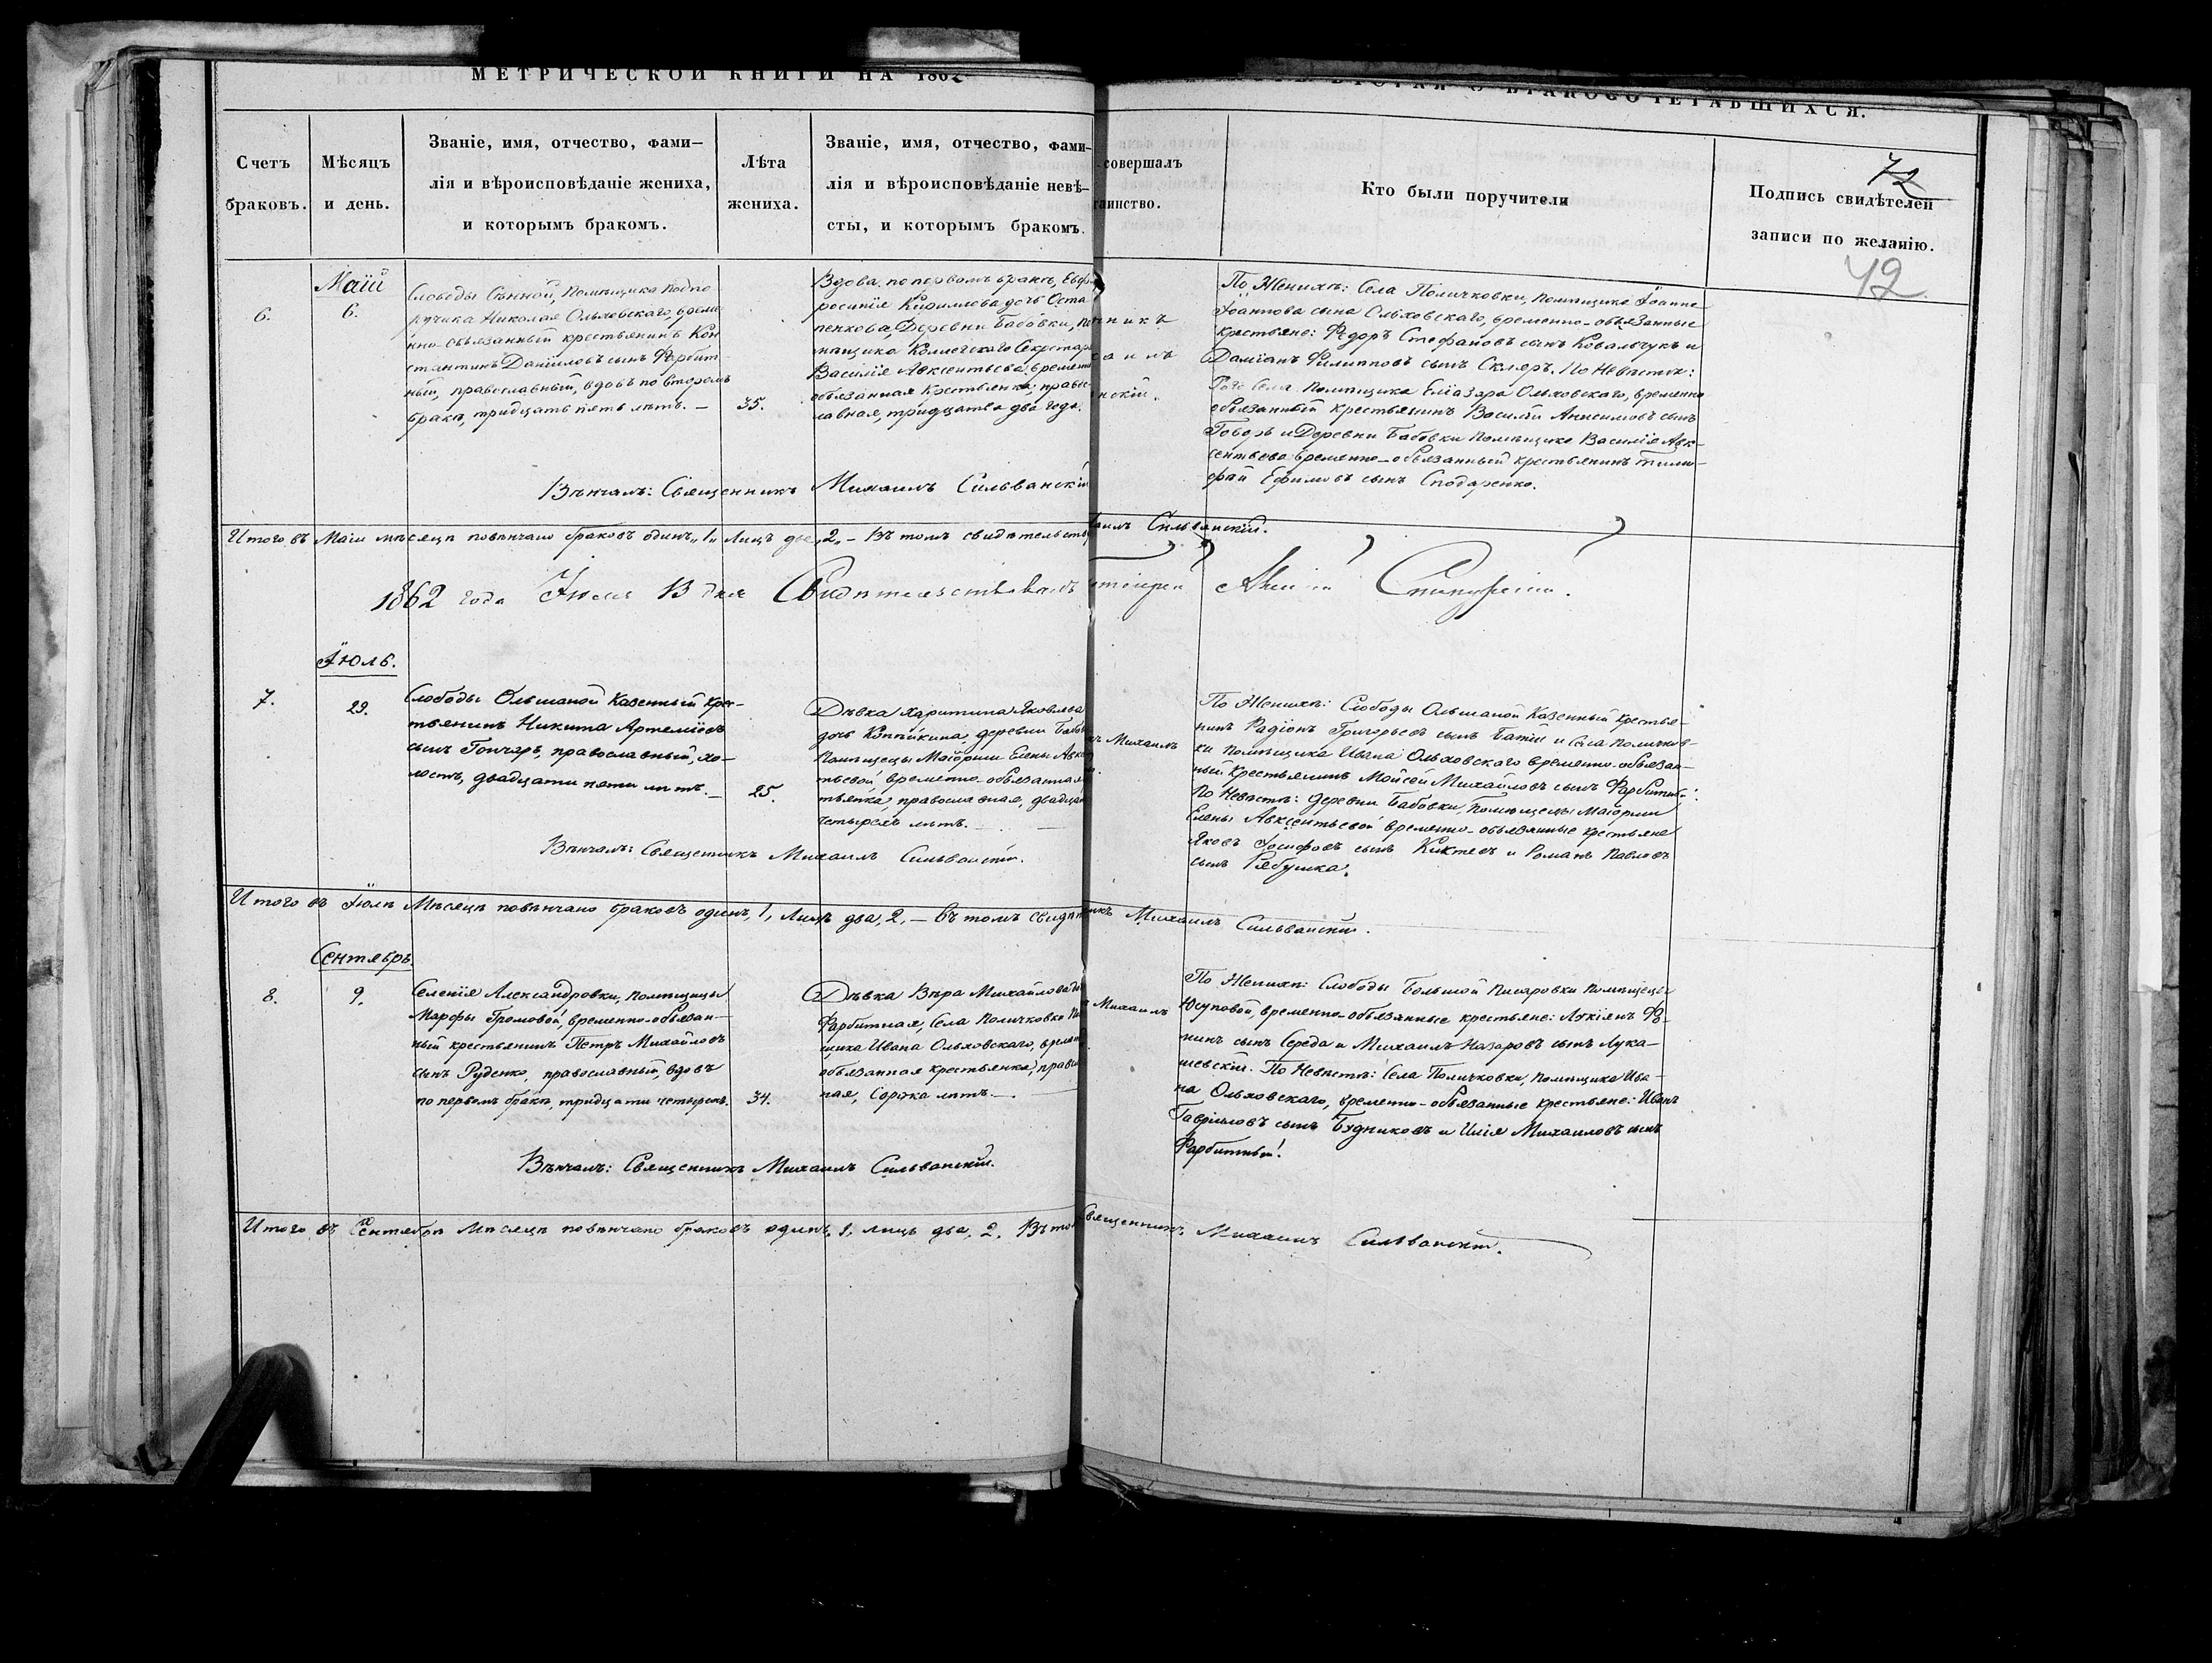 МЕТРИЧЕСКОЙ КНИГИ НА 1862
БРАКОСОЧЕТАВШИХСЯ.
Счетъ
браковъ.
Мѣсяцъ
и день.
Званіе, имя, отчество, фами-
лія и вѣроисповѣданіе жениха,
и которымъ бракомъ.
Лѣта
жениха.
Званіе, имя, отчество, фами-
лія и вѣроисповѣданіе невѣ-
сты, и которымъ бракомъ.
совершалъ
таинство.
Кто были поручители
Подпись свидѣтелей
записи по желанію.
72
42
6.
Маій
6.
Слободы Сѣнной, Помѣщика Подпо
ручика Николая Ольховскаго, време
нно-обязанный крестьянинъ Кон
стантинъ Даніиловъ сынъ Фарбит-
ный, православный, вдовъ по второмъ
бракѣ, тридцать пять лѣтъ. —
35.
Вдова по первомъ бракѣ, Евф
росинія Кириллова дочь Оста
пенкова, Деревни Бабовки, по
мѣщика Коллегскаго Секретаря
Василія Авксентьева временно
обязанная крестьянка, правос-
лавная, тридцать два года.
нникъ
саилъ
нскій.
По Женихѣ: Села Поличковки, помѣщика Іоанна
Іоаннова сына Ольховскаго, временно-обязанные
крестьяне: Ѳедоръ Стефановъ сынъ Ковальчукъ и
Даміанъ Филипповъ сынъ Скляръ. По Невѣстѣ:
Того Села помѣщика Еліазара Ольховскаго, временно
обязанный крестьянинъ Василій Анисимовъ сынъ
Говоръ и Деревни Бабовки помѣщика Василія Авк-
сентьева временно-обязанный крестьянинъ Тимо-
фей Ефимовъ сынъ Сподаренко.
Вѣнчалъ: Священникъ Михаилъ Сильванскій
Итого въ Маіи мѣсяцѣ повѣнчано браковъ одинъ „1„ Лицъ два „2„ — Въ томъ свидѣтельств
хаилъ Сильванскій.
1862 года Іюля 13 дня Свидѣтельствовалъ
Іюль.
7.
29.
Слободы Ольшаной Казенный крес-
тьянинъ Никита Артеміевъ
сынъ Гончаръ, православный, хо-
лостъ, двадцати пяти лѣтъ. —
25.
Дѣвка Харитина Яковлева
дочь Копѣйкина, деревни Бабов
Помѣщицы Маіорши Елены Авкс
тьевой, временно-обязанная
тьянка, православная, двадца
четырехъ лѣтъ. —
къ Михаилъ
По Женихѣ: Слободы Ольшаной Казенный крестья-
нинъ Радіонъ Григорьевъ сынъ Батій и Села Поличков-
ки помѣщика Ивана Ольховскаго временно-обязан-
ный крестьянинъ Мойсей Михайловъ сынъ Фарбитный.
По Невѣстѣ: деревни Бабовки, Помѣщицы Маіорши
Елены Авксентьевой временно-обязанные крестьяне
Яковъ Іосифовъ сынъ Киктевъ и Романъ Павловъ
сынъ Рябушка.
Вѣнчалъ: Священникъ Михаилъ Сильванскій.
Итого въ Іюлѣ Мѣсяцѣ повѣнчано браковъ одинъ, 1, Лицъ два, 2, — Въ томъ свидѣт
никъ Михаилъ Сильванскій.
Сентябрь.
8.
9.
Селенія Александровки, помѣщицы
Марфы Громовой, временно-обязан-
ный крестьянинъ Петръ Михайловъ
сынъ Руденко, православный, вдовъ
по первомъ бракѣ, тридцати четырехъ.
34.
Дѣвка Вѣра Михайлова до
Фарбитная, Села Поличковки По
щика Ивана Ольховскаго, времен
обязанная крестьянка, правос
ная, сорока лѣтъ. —
Михаилъ
По Женихѣ: Слободы Большой Писаровки Помѣщицы
Юсуповой, временно-обязанные крестьяне: Лукіянъ Ѳо-
минъ сынъ Середа и Михаилъ Назаровъ сынъ Лука-
шевскій. По Невѣстѣ: Села Поличковки, помѣщика Ива-
на Ольховскаго, временно-обязанные крестьяне: Иванъ
Гавріиловъ сынъ Будниковъ и Илія Михаиловъ сынъ
Фарбитный.
Вѣнчалъ: Священникъ Михаилъ Сильванскій.
Итого въ Сентябрѣ Мѣсяцѣ повѣнчано браковъ одинъ, 1, лицъ два, 2, Въ том
Священникъ Михаилъ Сильванскій.